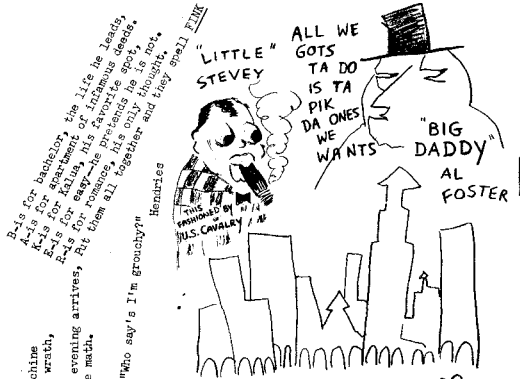 B-is for bachelor, the life he leads,
A-is for apartment of infamous deeds.
K-is for Kalua, his favorite spot,
E-is for easy--he pretends he is not.
R-is for romance, his only thought.
Put them all together and they spell FINK
chine
wrath,
evening arrives,
e math.
"Who say's I'm grouchy?" Hendries
"LITTLE"
STEVEY
ALL WE
GOTS
TA DO
IS TA
PIK
DA ONES
WE
WANTS
"BIG
DADDY"
AL
FOSTER
THIS
FASHIONED BY
U.S. CAVALRY